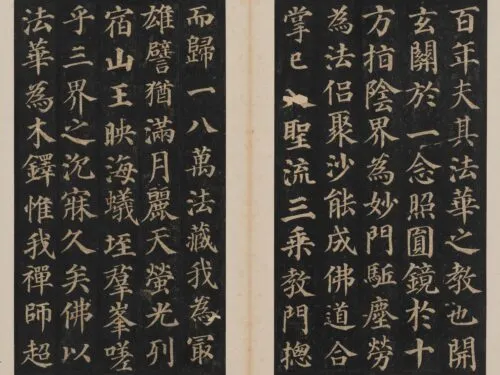 百年夫其法華之教也開
玄關於一念照圓鏡於十
方指陰界為妙門駈塵勞
為法侶聚沙能成佛道合
掌已入聖流三乘教門摠
而歸一八萬法藏我為冣
雄譬猶滿月麗天螢光列
宿山王映海蟻垤羣峯嗟
乎三界之沉寐久矣佛以
法華為木鐸惟我禪師超